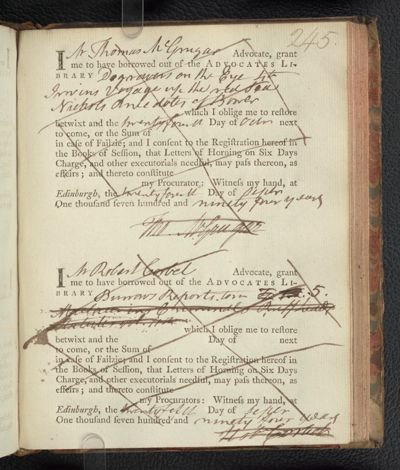 245.
I Mr Thomas McGrugar Advocate, grant
me to have borrowed out of the ADVOCATES LI-
BRARY on the Eye
Irwins Voyage up the red Sea
Nichols Anecdotes of Bowyer
which I oblige me to restore
betwixt and the twenty fourth Day of Octr next
to come, or the Sum of
in case of Failzie; and I consent to the Registration hereof in
the Books of Session, that Letters of Horning on Six Days
Charge, and other executorials needful, may pass thereon, as
effeirs; and thereto constitute
my Procurator: Witness my hand, at
Edinburgh, the twenty fourth Day of Septr
One thousand seven hundred and ninety four years
I Mr Robert Corbet Advocate, grant
me to have borrowed out of the ADVOCATES LI-
BRARY Burrows Reports tom 5.
which I oblige me to restore
betwixt and the Day of next
to come, or the Sum of
in case of Failzie; and I consent to the Registration hereof in
the Books of Session, that Letters of Horning on Six Days
Charge, and other executorials needful, may pass thereon, as
effeirs; and thereto constitute
my Procurator: Witness my hand, at
Edinburgh, the Day of Septr
One thousand seven hundred and ninety four years
Robt Corbet